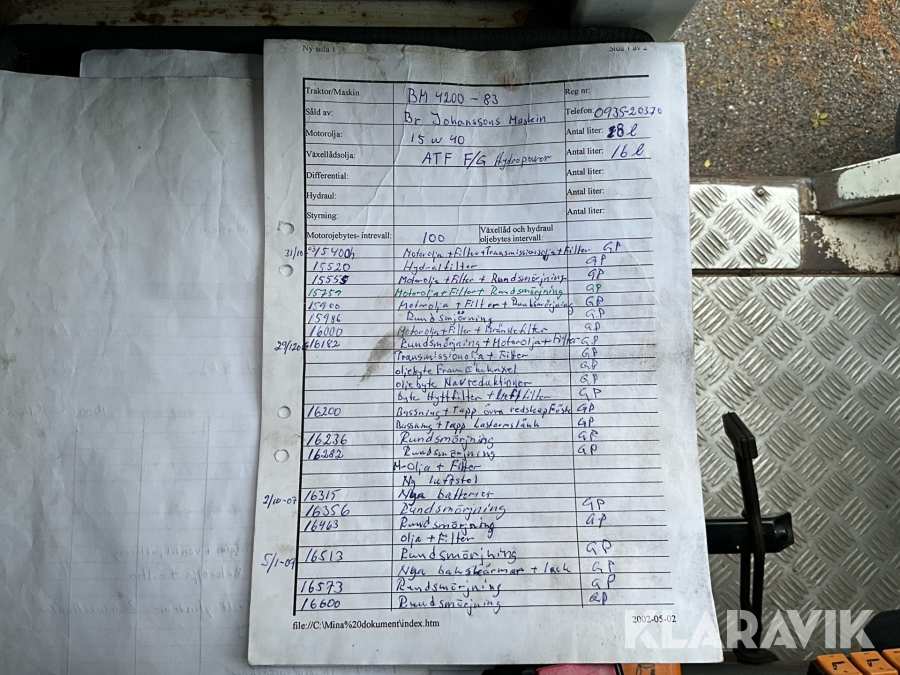 Ny sida 1 Sida 1 av 2
Traktor/Maskin BM 4200 - 83 Reg nr:
Såld av: Br Johanssons Maskin Telefon: 0935-20370
Motorolja: 15 w 40 Antal liter: 8 l
Växellådsolja: ATF F/G Hydropower Antal liter: 16 l
Differential: Antal liter:
Hydraul: Antal liter:
Styrning: Antal liter:
Motorojebytes- intrevall: 100 Växellåd och hydraul oljebytes intervall:
31/10 15400h Motorolja + Filter + Transmissionsolja + Filter GP
15520 Hydralfilter GP
15555 Motorolja + Filter + Rundsmörjning GP
15751 Motorolja + Filter + Rundsmörjning GP
15900 Motrolja + Filter + Rundsmörjning GP
15986 Rundsmörjning GP
16000 Motorolja + Filter + Bränslefilter GP
16182 Rundsmörjning + Motorolja + Filter GP
Transmissionolja + Filter GP
oljebyte Fram & bakaxel GP
oljebyte Navreduktioner GP
byte Hyttfilter + luftfilter GP
16200 Bussning + Tapp övre redskapsfäste GP
Bussning + Tapp Lastarmslänk GP
16236 Rundsmörjning GP
16282 Rundsmörjning GP
M-olja + Filter
Ny luftstol
2/10-07 16315 Nya batterier
16356 Rundsmörjning GP
16463 Rundsmörjning GP
olja + Filter
5/1-09 16513 Rundsmörjning GP
Nya bakskärmar + lack GP
16573 Rundsmörjning GP
16600 Rundsmörjning GP
file://C:\Mina%20dokument\index.htm 2002-05-02
KLARAVIK